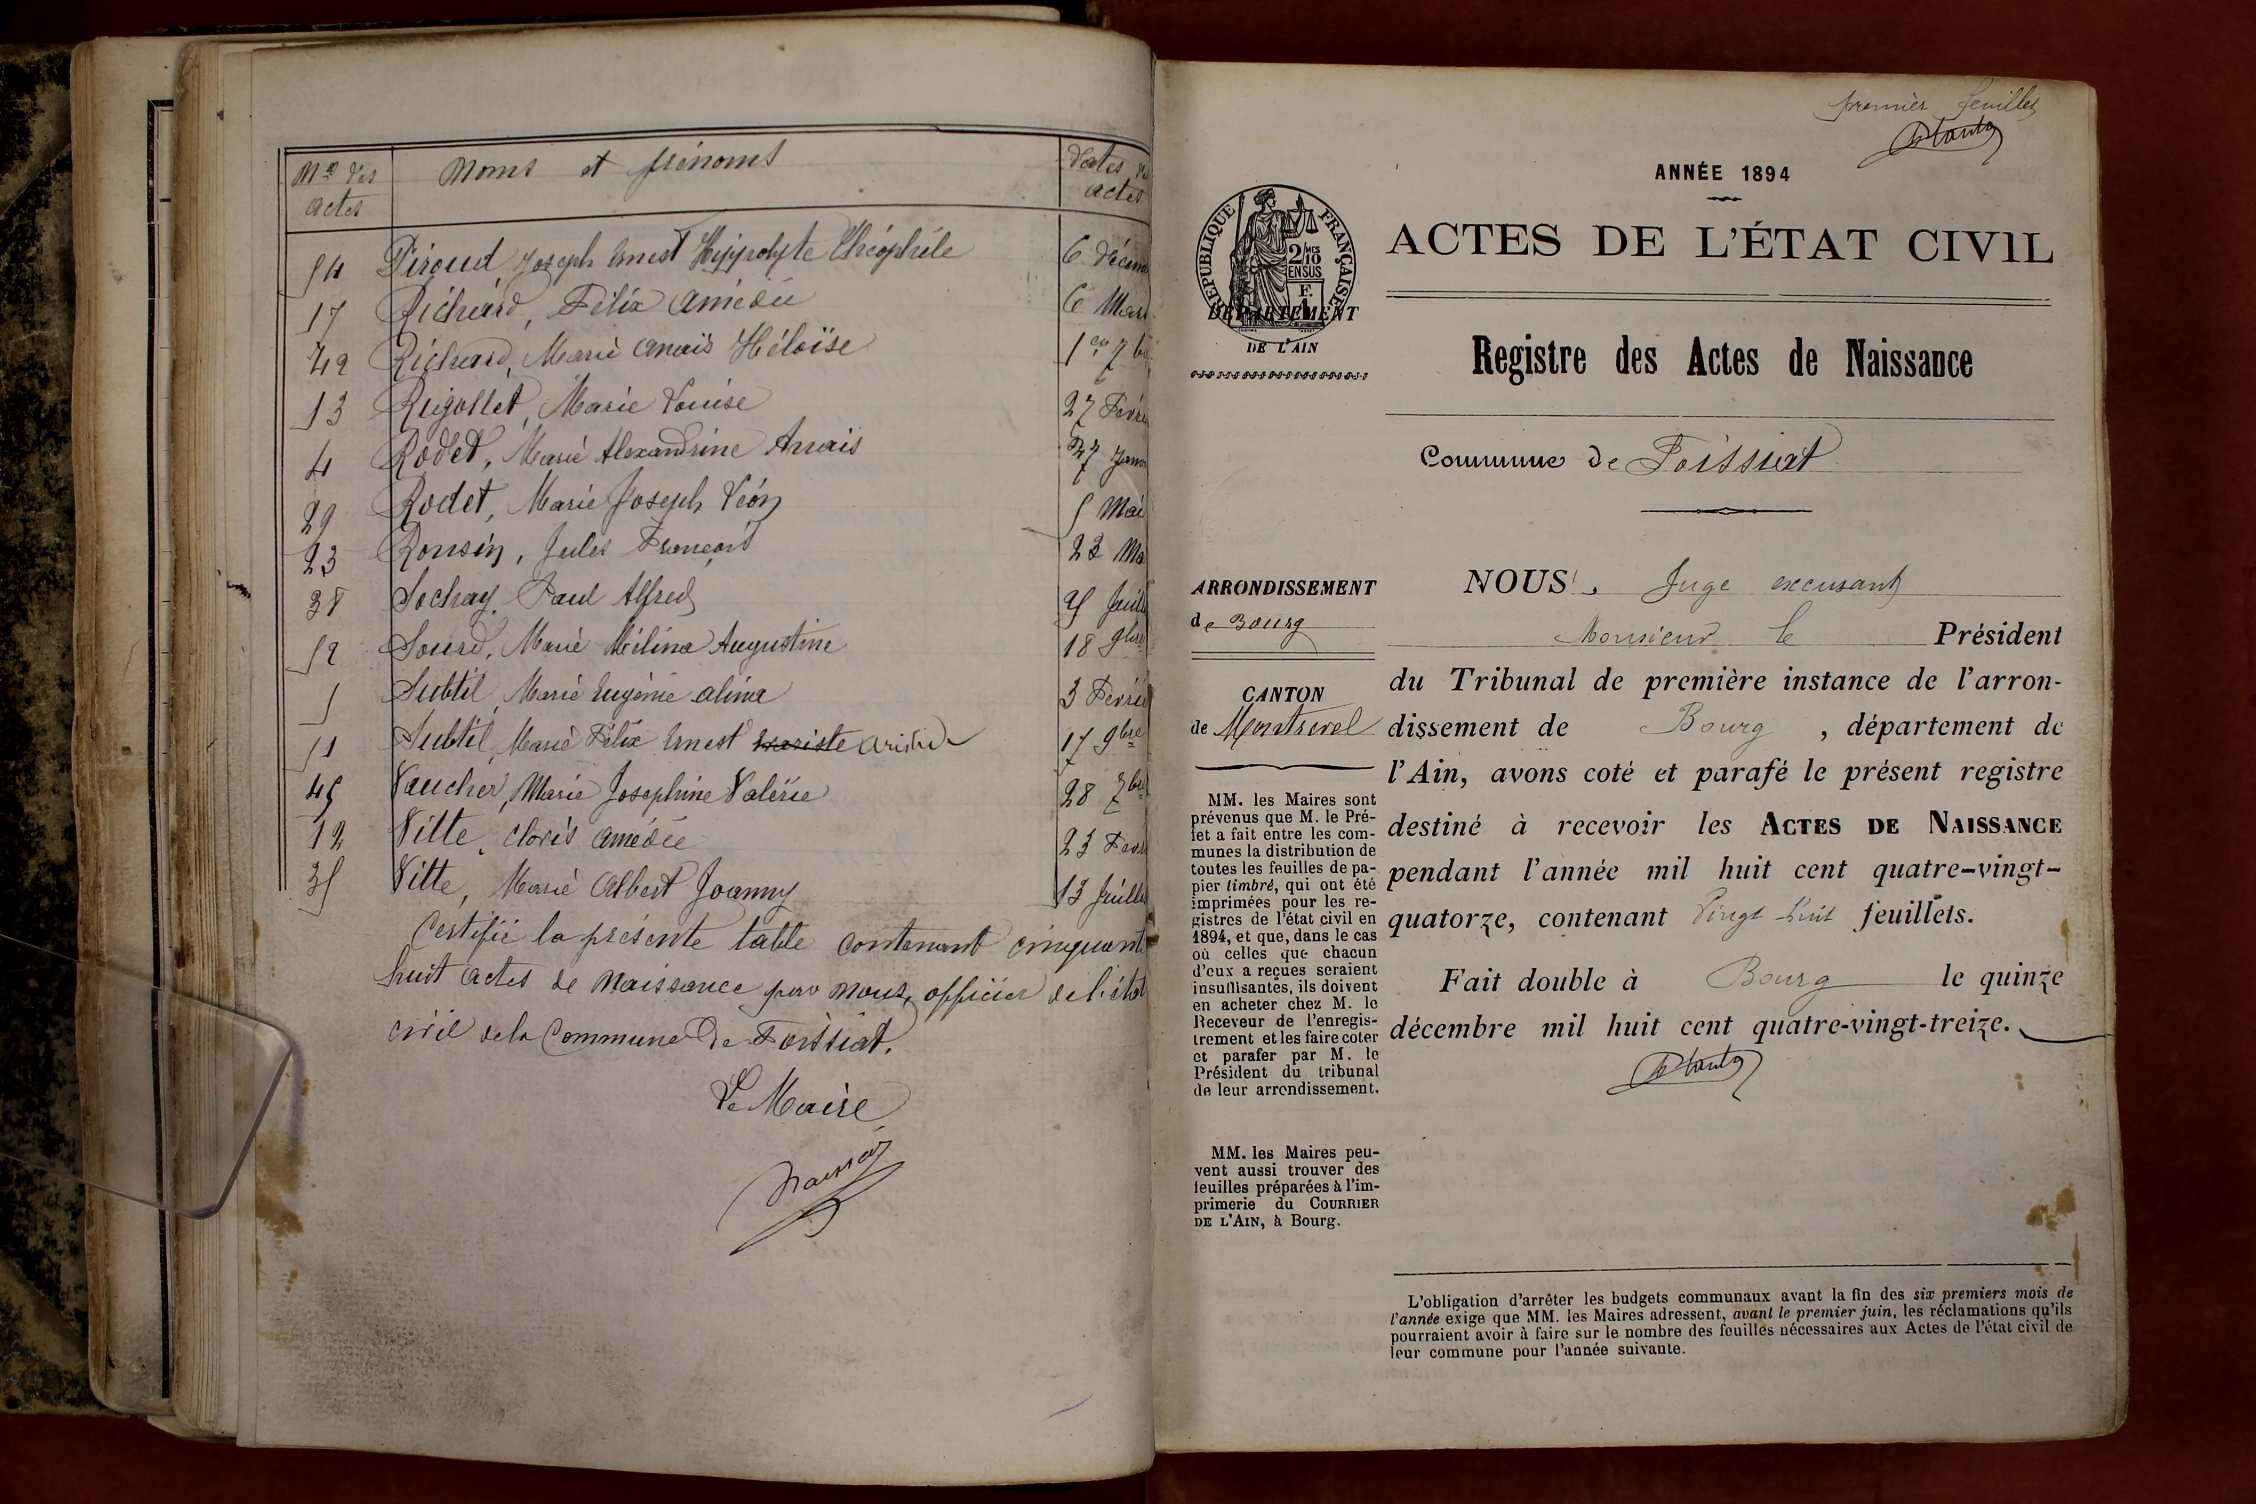 Nos des actes Noms et prénoms Dates des actes
54 Piroud Joseph Ernest Hyppolyte Théophile 6 Décem
17 Richard, Félix Amédée 6 Mars
42 Richard, Marie Anaïs Héloïse 1er 7b
13 Rigollet, Marie Louise 27 Févri
4 Rodet, Marie Alexandrine Anais 27 Janv
29 Rodet, Marie Joseph Léon 5 Mai
23 Ronsin, Jules François 23 Ma
38 Sochay, Paul Alfred 25 Juil
52 Sourd, Marie Mélina Augustine 18 9bre
5 Subtil, Marie Eugénie Alina 3 Févrie
51 Subtil, Marie Félix Ernest Evariste Aristide 17 9bre
45 Vaucher, Marie Joséphine Valérie 28 7bre
12 Vitte, Clovis Amédée 23 Févr
35 Vitte, Marie Albert Joanny 13 Juille
Certifié la présente table contenant cinquante
huit actes de naissance par nous, officier de l'état
civil de la Commune de Foissiat.
Le Maire
premier feuillet
ANNÉE 1894
RÉPUBLIQUE FRANÇAISE
2/10 EN SUS
F. 1
DÉPARTEMENT
DE L'AIN
ACTES DE L'ÉTAT CIVIL
Registre des Actes de Naissance
Commune de Foissiat
ARRONDISSEMENT
de Bourg
CANTON
de Montrevel
MM. les Maires sont
prévenus que M. le Pré-
fet a fait entre les com-
munes la distribution de
toutes les feuilles de pa-
pier timbré, qui ont été
imprimées pour les re-
gistres de l'état civil en
1894, et que, dans le cas
où celles que chacun
d'eux a reçues seraient
insuffisantes, ils doivent
en acheter chez M. le
Receveur de l'enregis-
trement et les faire coter
et parafer par M. le
Président du tribunal
de leur arrondissement.
MM. les Maires peu-
vent aussi trouver des
feuilles préparées à l'im-
primerie du COURRIER
DE L'AIN, à Bourg.
NOUS, Juge excusant
Monsieur le Président
du Tribunal de première instance de l'arron-
dissement de Bourg, département de
l'Ain, avons coté et parafé le présent registre
destiné à recevoir les ACTES DE NAISSANCE
pendant l'année mil huit cent quatre-vingt-
quatorze, contenant Vingt huit feuillets.
Fait double à Bourg le quinze
décembre mil huit cent quatre-vingt-treize.
L'obligation d'arrêter les budgets communaux avant la fin des six premiers mois de
l'année exige que MM. les Maires adressent, avant le premier juin, les réclamations qu'ils
pourraient avoir à faire sur le nombre des feuilles nécessaires aux Actes de l'état civil de
leur commune pour l'année suivante.